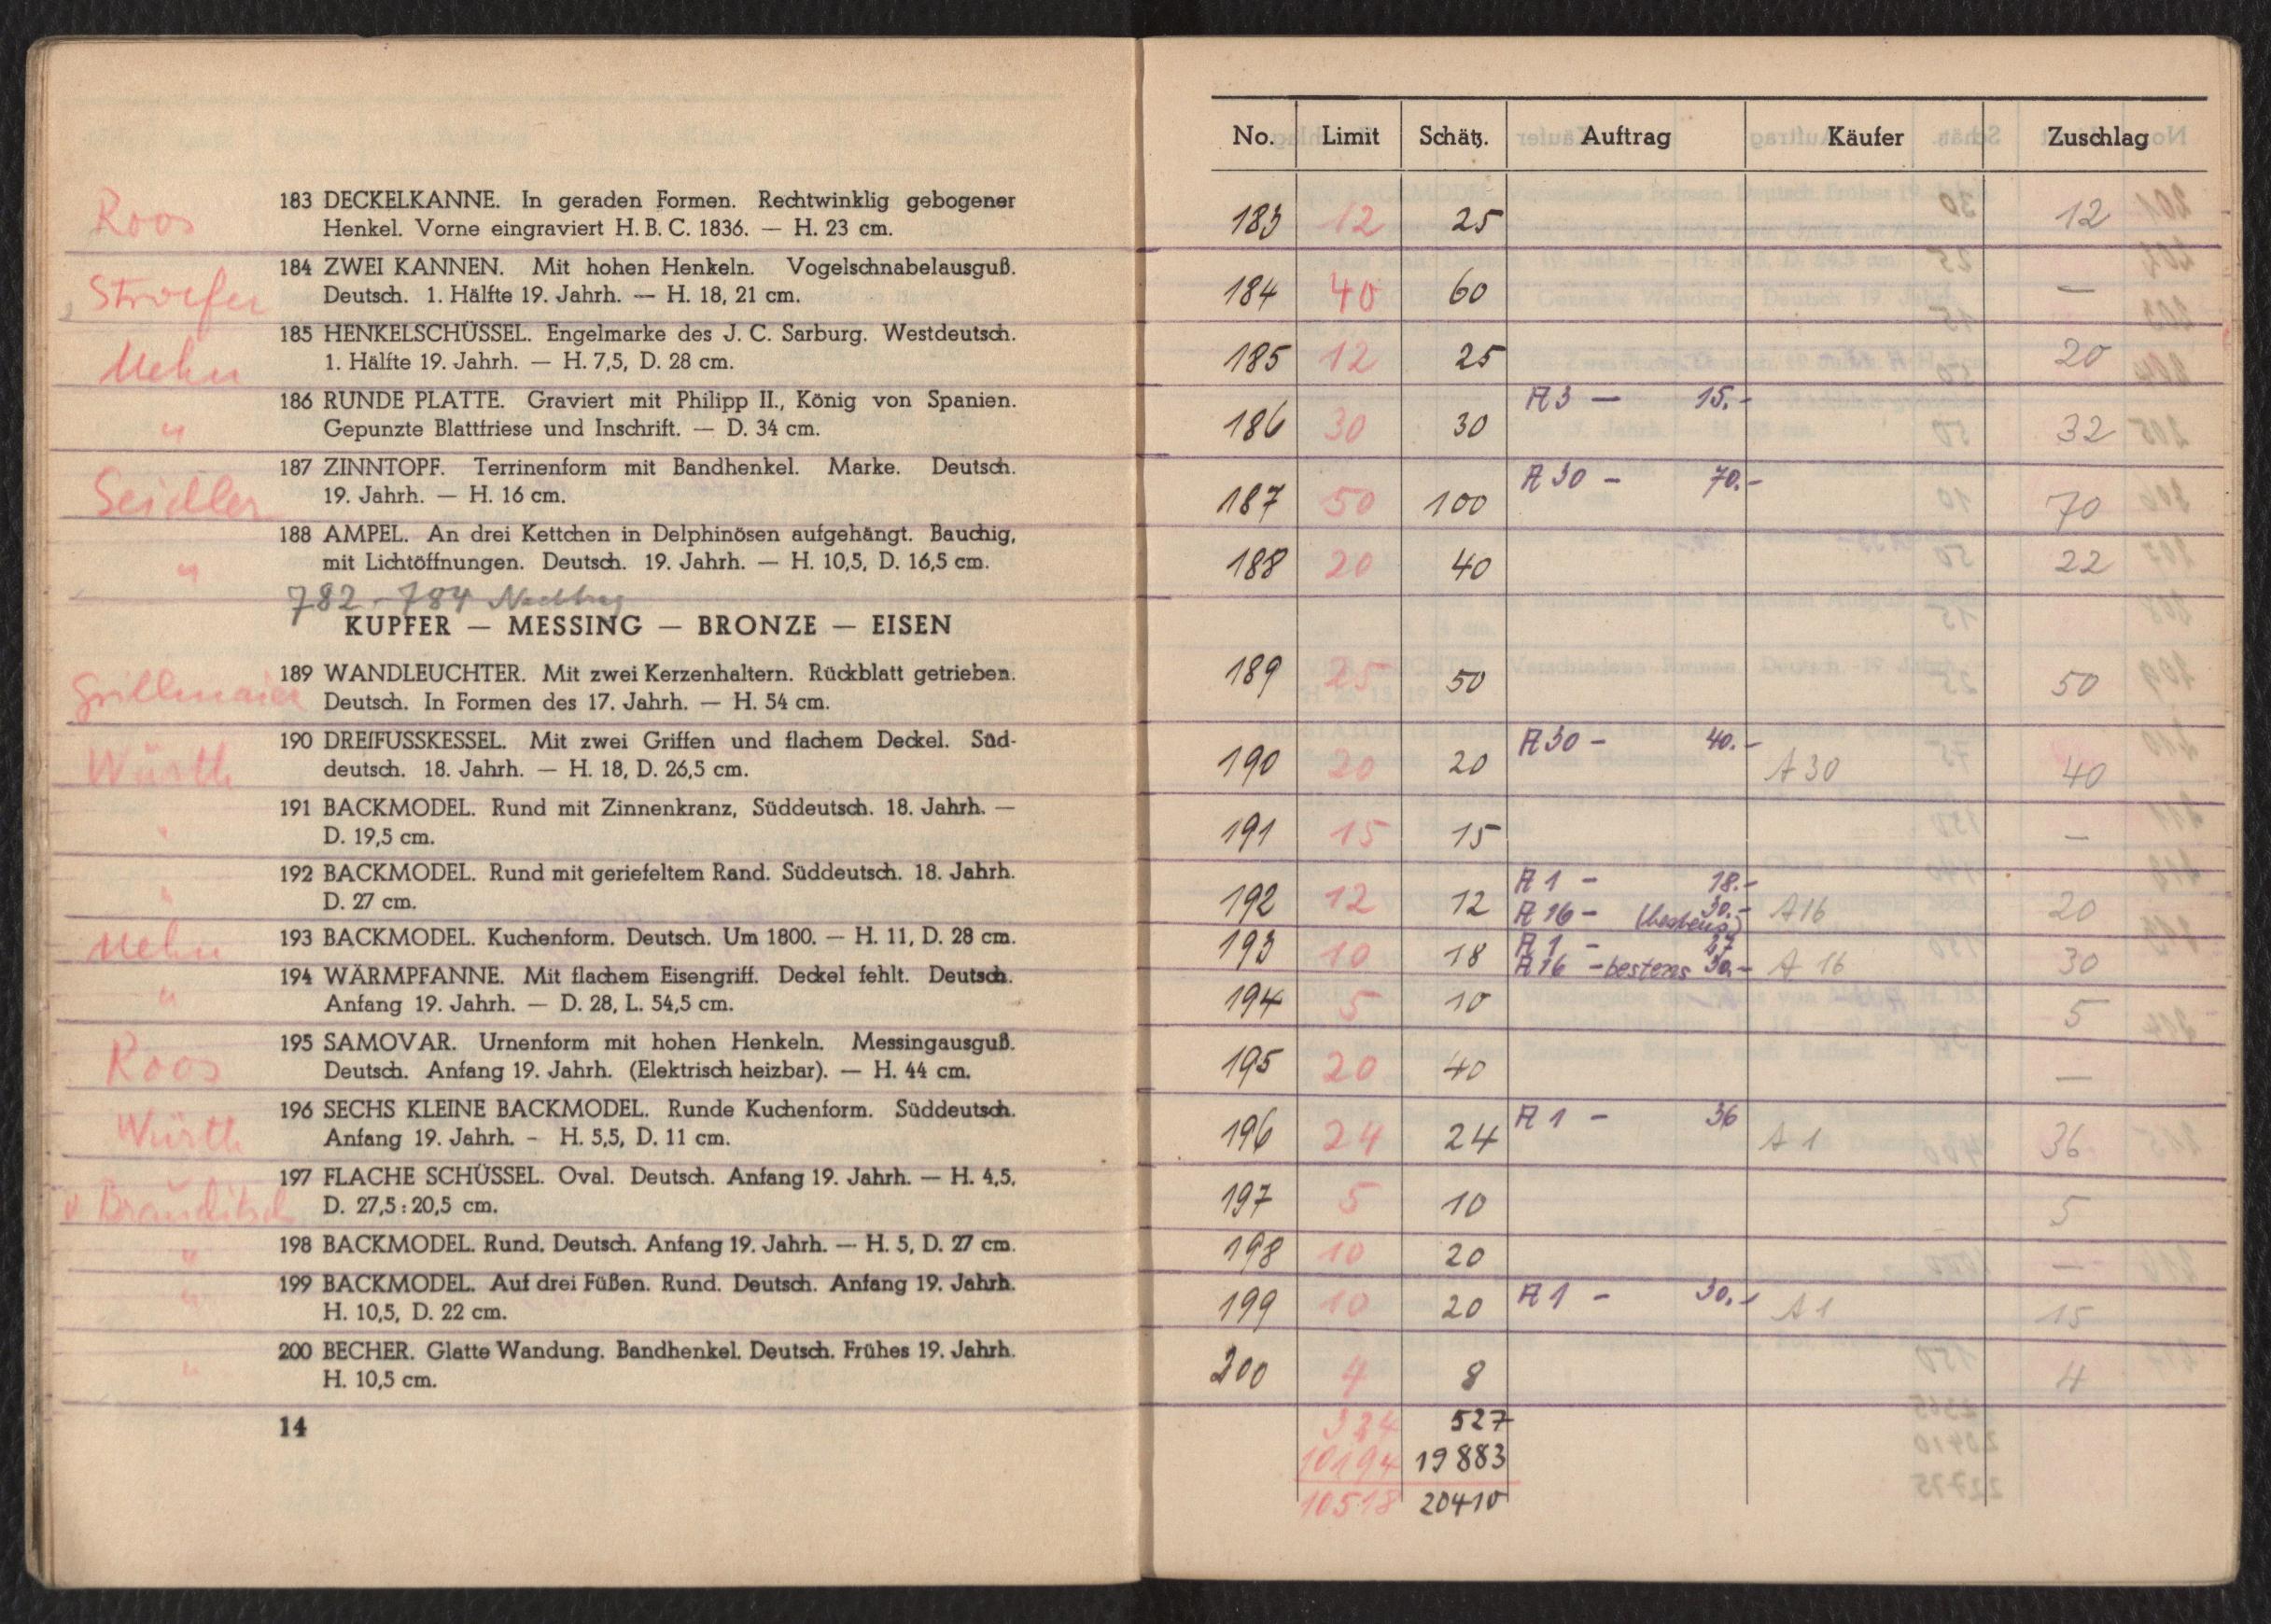 Roos
183 DECKELKANNE. In geraden Formen. Rechtwinklig gebogener
Henkel. Vorne eingraviert H. B. C. 1836. — H. 23 cm.
184 ZWEI KANNEN. Mit hohen Henkeln. Vogelschnabelausguß.
Deutsch. 1. Hälfte 19. Jahrh. — H. 18, 21 cm.
185 HENKELSCHÜSSEL. Engelmarke des J. C. Sarburg. Westdeutsch.
1. Hälfte 19. Jahrh. — H. 7,5, D. 28 cm.
186 RUNDE PLATTE. Graviert mit Philipp II., König von Spanien.
" Gepunzte Blattfriese und Inschrift. — D. 34 cm.
187 ZINNTOPF. Terrinenform mit Bandhenkel. Marke. Deutsch.
Seidler 19. Jahrh. — H. 16 cm.
188 AMPEL. An drei Kettchen in Delphinösen aufgehängt. Bauchig,
" mit Lichtöffnungen. Deutsch. 19. Jahrh. — H. 10,5, D. 16,5 cm.
782 - 784 Nachtrag
KUPFER — MESSING — BRONZE — EISEN
189 WANDLEUCHTER. Mit zwei Kerzenhaltern. Rückblatt getrieben.
Grillmaier Deutsch. In Formen des 17. Jahrh. — H. 54 cm.
190 DREIFUSSKESSEL. Mit zwei Griffen und flachem Deckel. Süd-
Würth deutsch. 18. Jahrh. — H. 18, D. 26,5 cm.
191 BACKMODEL. Rund mit Zinnenkranz, Süddeutsch. 18. Jahrh. —
" D. 19,5 cm.
192 BACKMODEL. Rund mit geriefeltem Rand. Süddeutsch. 18. Jahrh.
" D. 27 cm.
193 BACKMODEL. Kuchenform. Deutsch. Um 1800. — H. 11, D. 28 cm.
194 WÄRMPFANNE. Mit flachem Eisengriff. Deckel fehlt. Deutsch.
" Anfang 19. Jahrh. — D. 28, L. 54,5 cm.
195 SAMOVAR. Urnenform mit hohen Henkeln. Messingausguß.
Roos Deutsch. Anfang 19. Jahrh. (Elektrisch heizbar). — H. 44 cm.
196 SECHS KLEINE BACKMODEL. Runde Kuchenform. Süddeutsch.
Würth Anfang 19. Jahrh. - H. 5,5, D. 11 cm.
197 FLACHE SCHÜSSEL. Oval. Deutsch. Anfang 19. Jahrh. — H. 4,5,
D. 27,5 : 20,5 cm.
" 198 BACKMODEL. Rund. Deutsch. Anfang 19. Jahrh. — H. 5, D. 27 cm.
" 199 BACKMODEL. Auf drei Füßen. Rund. Deutsch. Anfang 19. Jahrh.
H. 10,5, D. 22 cm.
200 BECHER. Glatte Wandung. Bandhenkel. Deutsch. Frühes 19. Jahrh.
" H. 10,5 cm.
14
No. Limit Schätz. Auftrag Käufer Zuschlag
183 12 25 12
184 40 60 —
185 12 25 20
A 3 — 15.-
186 30 30 32
A 30 - 70.-
187 50 100 70
188 20 40 22
189 25 50 50
A 30 - 40.-
190 20 20 A 30 40
191 15 15 —
A 1 - 18.-
192 12 12 A 16 - 30.- (bestens) A 16 20
A 1 - 27
193 10 18 A 16 - bestens 30.- A 16 30
194 5 10 5
195 20 40 —
A 1 - 36
196 24 24 A 1 36
197 5 10 5
198 10 20 —
199 10 20 A 1 - 30.- A 1 15
200 4 8 4
324 527
10194 19883
10518 20410